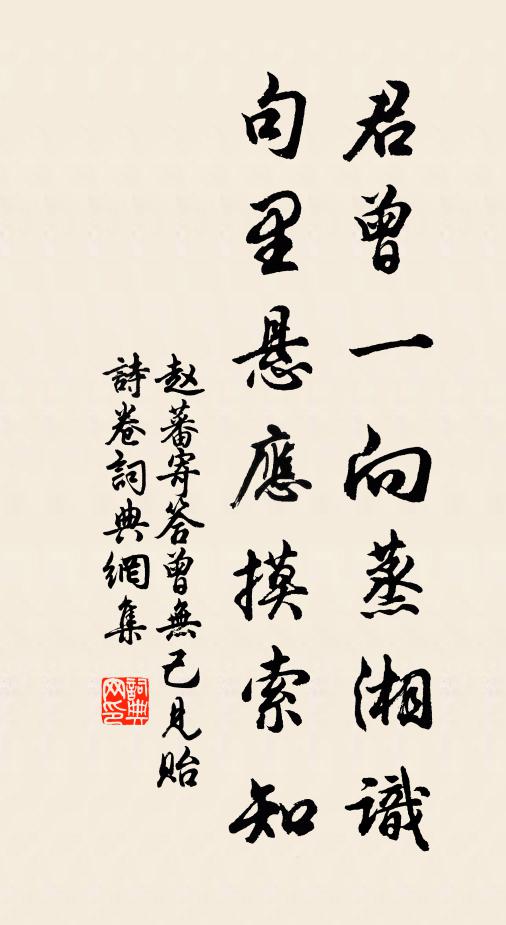 君曾一向蒸湘識
句里悬應摸索知
赵蕃寄答曾無已見貽
詩卷詞典網集
詞典网印